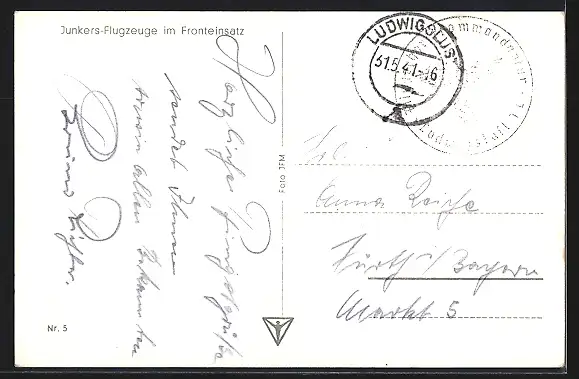 Junkers-Flugzeuge im Fronteinsatz
Herzliche Pfingstgrüße
sendet Ihnen
allen Bekannten
Richter.
Nr. 5
Foto JFM
LUDWIGSLUST
31.5.41.-16
a
Kommandantur
Anna
Fürth i/Bayern
Markt 5